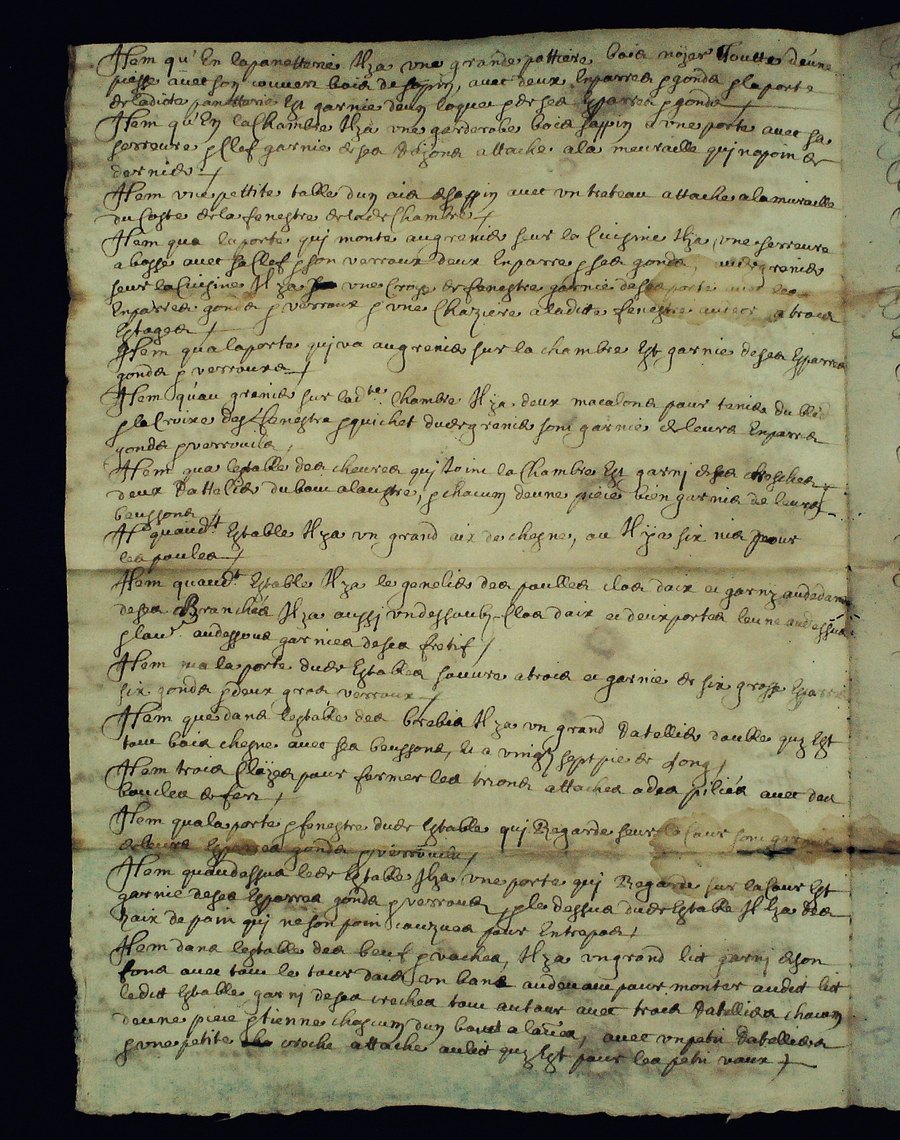 Item qu'En lapanetterie Ilya une grande pattiere bois noyer Toutte d'eune
piesse avec son couvert bois de sapin, avec deux Enparres & gonds & la porte
de ladicte panetterie Est garnie deun loquet & de ses Esparres & gonds
Item qu'En lachambre Ilya une garderobe bois sappin a une porte avec sa
serreure & Clef garnie de ses attache ala meuraille quj napoin de
dernies
Item une pettite table dun ais de sappin avec un trateau attache alamuraille
du Coste de la fenestre de lade Chambre
Item qua laporte quj monte augrenies seur la Cuisine Ilya, une serreure
a bosse avec saClef & son verroux deux Enparre & ses gonds, audt grenies
seur la Cuisine Ilya une Croise de fenestre garnie de ses porte
Enparres gonds & verroux & une Chaziere aladitte fenestre a trois
Estages
Item qua laporte quj va au grenies sur la chambre Est garnie de ses Esparres
gonds & verroux
Item qu'au grenies sur ladte Chambre Ilya deux macalons pour tenis du bled
& la Croise des fenestre & guichet dudt grenies sont garnie de leurs Enparres
gonds & verrouils
Item qua lestable des cheures quj Join la Chambre Est garnj de ses Creches
deux Rattelies du bout alaustre, & chacun deune piece bien garnis de leurs
beussons
It quaudt Estable Ilya un grand aix de chesne, ou Ilya six nis pour
les poules
Item quaudt Estable Ilya le genelies des poulles clos daix et garny audedans
de ses Branches Ilya aussj undessoubz Clos daix et deux portes leune audessus
& lautr audessous garnies de ses fretif
Item qua la porte dudt Estables souvre a trois et garnie de six grosse Esparres
six gonds & deux gros verroux
Item que dans lestable des brebis Ilya un grand Ratellies double quy Est
tout bois chesne avec ses beussons, Il a vingt sept pies de Long
Item trois Clayes pour fermer les trions attaches a des pilies avec des
boucles de fert
Item qua la porte & fenestre dudt Estable quj Regarde seur la Cour sont garnie
de leurs Esparres gonds & verrouils
Item quaudessus ledt Estable Ilya une porte quj Regarde sur la Cour Est
garnie de ses Esparres gonds & verroux & le dessus dudt Estable Ilya des
haix de pain quj ne son poin pour Entrepos
Item dans lestable des beuf & vaches, Ilya un grand lit garnj de son
fond avec tout le tour daix un banc audevant pour monter audit lit
ledit Estable garnj de ses creches tout autour avec trois Ratellies chacun
deune piece & tienne chescun dun bout a lautre, avec un petit Ratellies
& une petite creche attache aulit quy Est pour les petit vaux